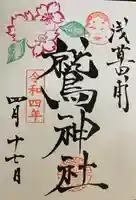 浅草田甫
鷲神社
令和四年
四月十七日